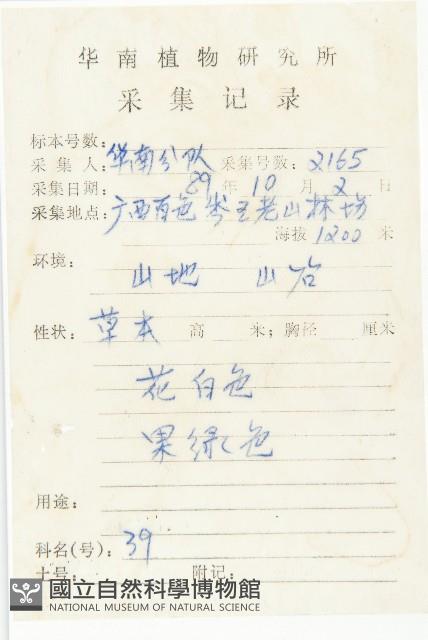 华南植物研究所
采集记录
标本号数：
采集人：华南分队 采集号数：2165
采集日期 89年10月2日
采集地点：广西百色岑王老山林场
海拔1200米
环境：
山地 山谷
性状：草本 高 米；胸径 厘米
花白色
果绿色
用途：
科名(号)：39
土号 附记：
國立自然科學博物館
NATIONAL MUSEUM OF NATURAL SCIENCE